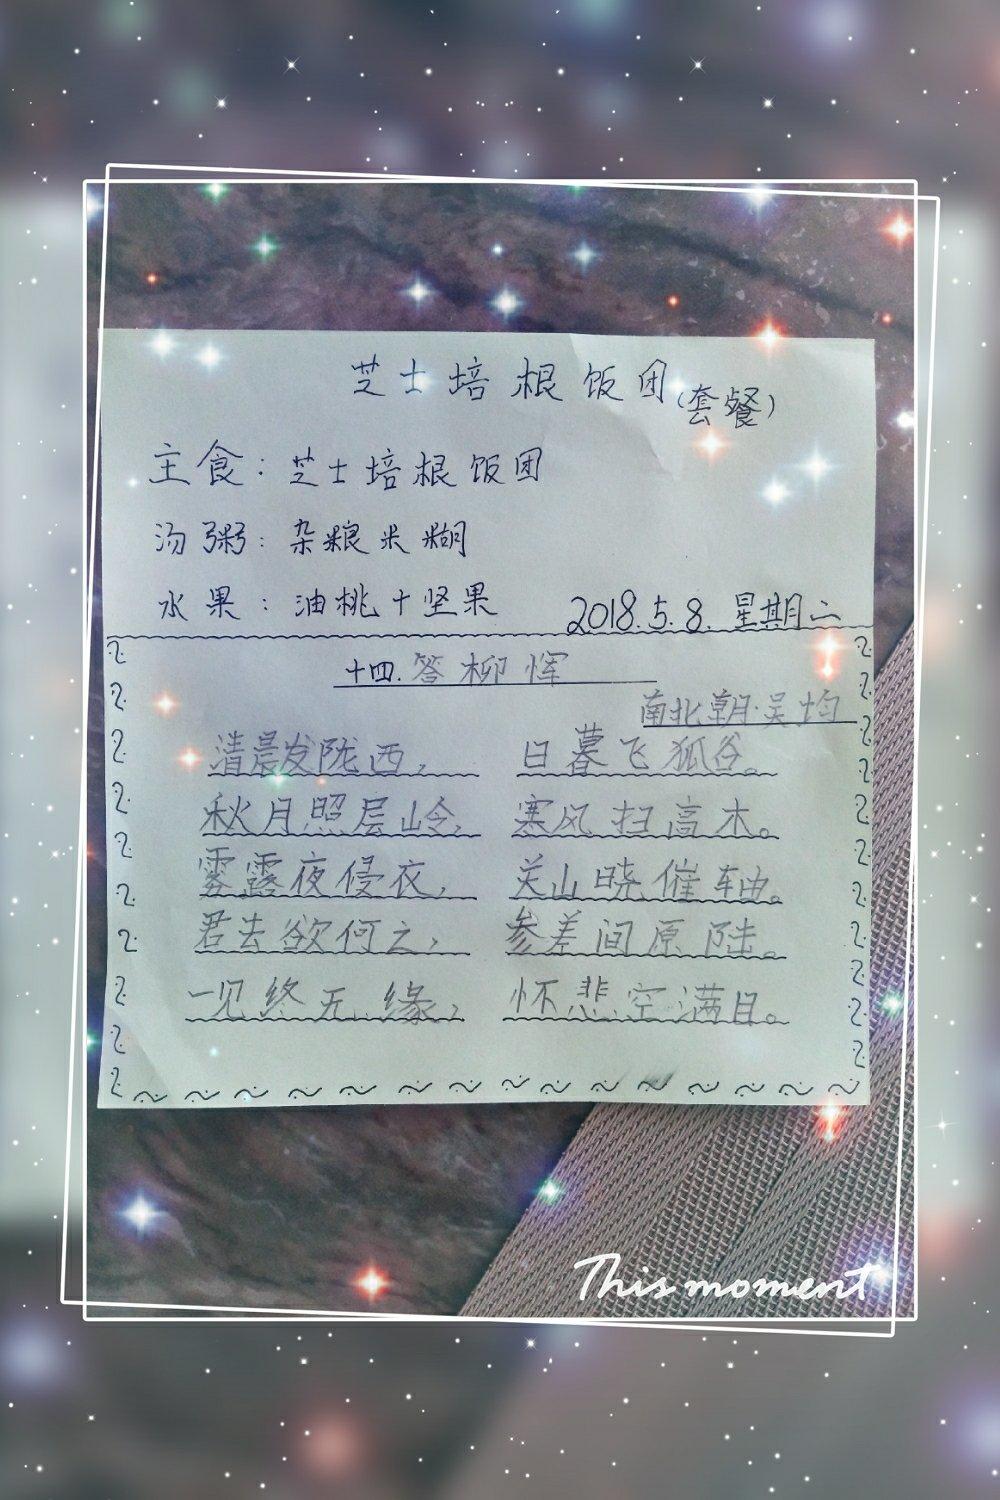 芝士培根饭团(套餐)
主食：芝士培根饭团
汤粥：杂粮米糊
水果：油桃+坚果
2018.5.8. 星期二
十四.答柳恽
南北朝·吴均
清晨发陇西， 日暮飞狐谷。
秋月照层岭， 寒风扫高木。
雾露夜侵衣， 关山晓催轴。
君去欲何之， 参差间原陆。
一见终无缘， 怀悲空满目。
This moment